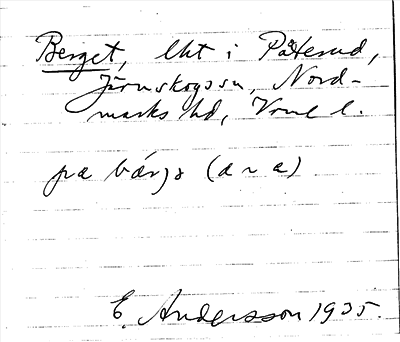 Berget, lht i Påterud,
Järnskogssn, Nord-
marks hd, Vrml l.
pæ bærjə (a ~ æ)
E. Andersson 1935.